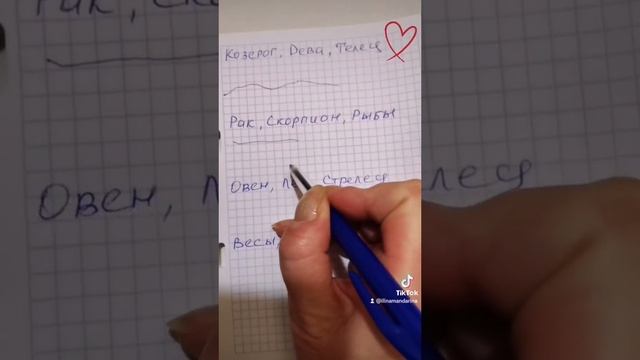 Козерог, Дева, Телец
Рак, Скорпион, Рыбы
Овен, Стрелец
Весы,
TikTok
@ilinamandarina